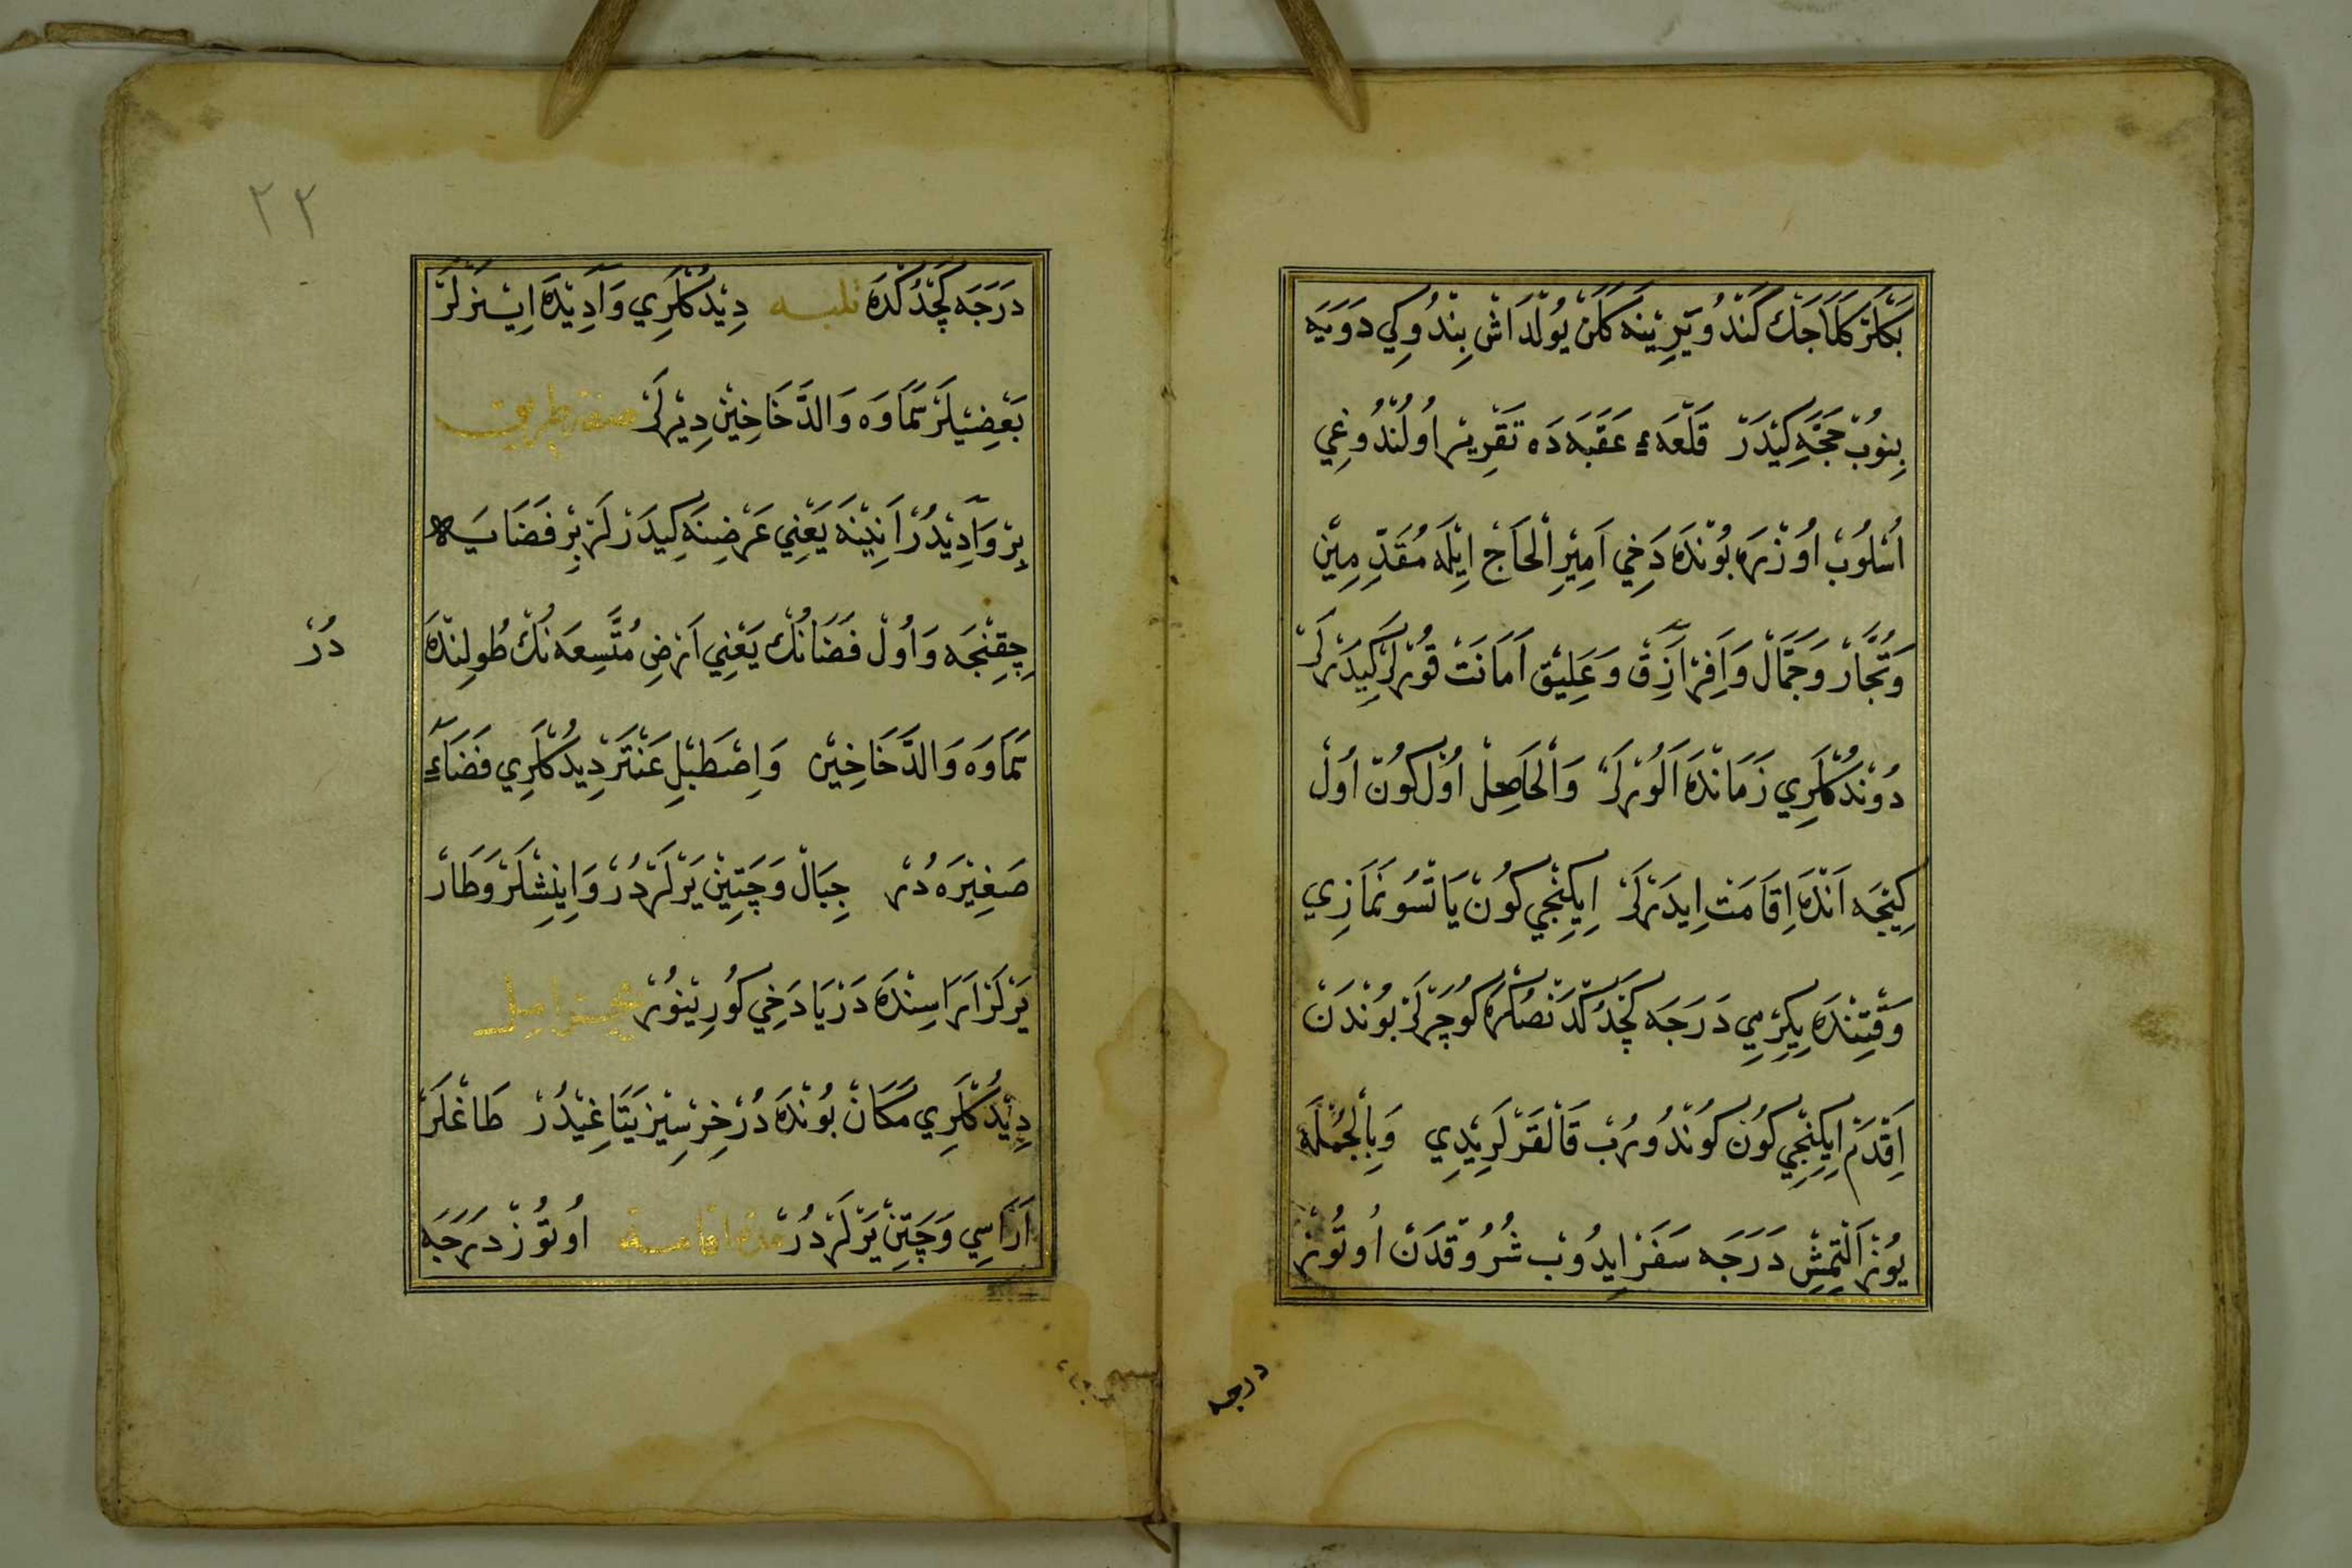 بَكْلَرْ كَلَمَاجَكْ كَنْدُو يَرِينَه كَلَنْ يُولْدَاشْ بِنْدُوكِي دَوَيَه
بِنُوبْ حَجَّه كِيدَرْ قَلْعَهٴ عَقَبَه دَه تَقْرِيرْ اُولُنْدُوغِي
اُسْلُوبْ اُوزْرَه بُونْدَه دَخِي اَمِيرِ الْحَاجْ اِيلَه مُقَدِّمِينْ
وَتُجَّارْ وَجَمَّالْ وَافِرْ اَزِقْ وَعَلِيقْ اَمَانَتْ قُورْلَرْ كِيدَرْلَرْ
دُونْدُكْلَرِي زَمَانْدَه اَلُورْلَرْ وَالْحَاصِلْ اُولْ كُونْ اُولْ
كِيجَه اَنْدَه اِقَامَتْ اِيدَرْلَرْ اِيكِنْجِي كُونْ يَاتْسُو نَمَازِي
وَقْتِنْدَه يِكِرْمِي دَرَجَه كَچْدُكْدَنْصُكْرَه كُوچَرْلَرْ بُونْدَنْ
اَقْدَمْ اِيكِنْجِي كُونْ كُونْدُورُبْ قَالْقَرْلَرِيدِي وَبِالْجُمْلَه
يُوزْ اَلْتِمِشْ دَرَجَه سَفَرْ اِيدُوبْ شُرُوقْدَنْ اُوتُوزْ
درجه
٢٢
دَرَجَه كَچْدُكْدَه دِيدُكْلَرِي وَادِيدَه اِينَرْلَرْ
بَعْضِيلَرْ سَمَاوَه وَالدَّخَاخِينْ دِيرْلَرْ
بِرْ وَادِيدُرْ اَنِينَه يَعْنِي عَرْضِنَه كِيدَرْلَرْ بِرْ فَضَايَه
چِقِنْجَه وَاُولْ فَضَانُكْ يَعْنِي اَرْضِ مُتَّسِعَه نُكْ طُولِنْدَه
دُرْ
سَمَاوَه وَالدَّخَاخِينْ وَاِصْطَبْلِ عَنْتَرْ دِيدُكْلَرِي فَضَاءِ
صَغِيرَه دُرْ جِبَالْ وَچَتِينْ يَرْلَرْدُرْ وَاِينِشْلَرْ وَطَارْ
يَرْلَرْ اَرَاسِنْدَه دَرْيَا دَخِي كُورِينُورْ
دِيدُكْلَرِي مَكَانْ بُونْدَه دُرْ خِرْسِيزْ يَتَاغِيدُرْ طَاغْلَرْ
اَرَاسِي وَچَتِينْ يَرْلَرْدُرْ اُوتُوزْ دَرَجَه